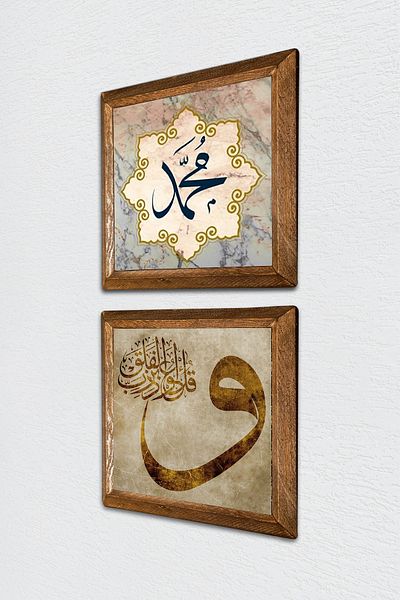 مُحَمَّد
قل أعوذ برب الفلق
و